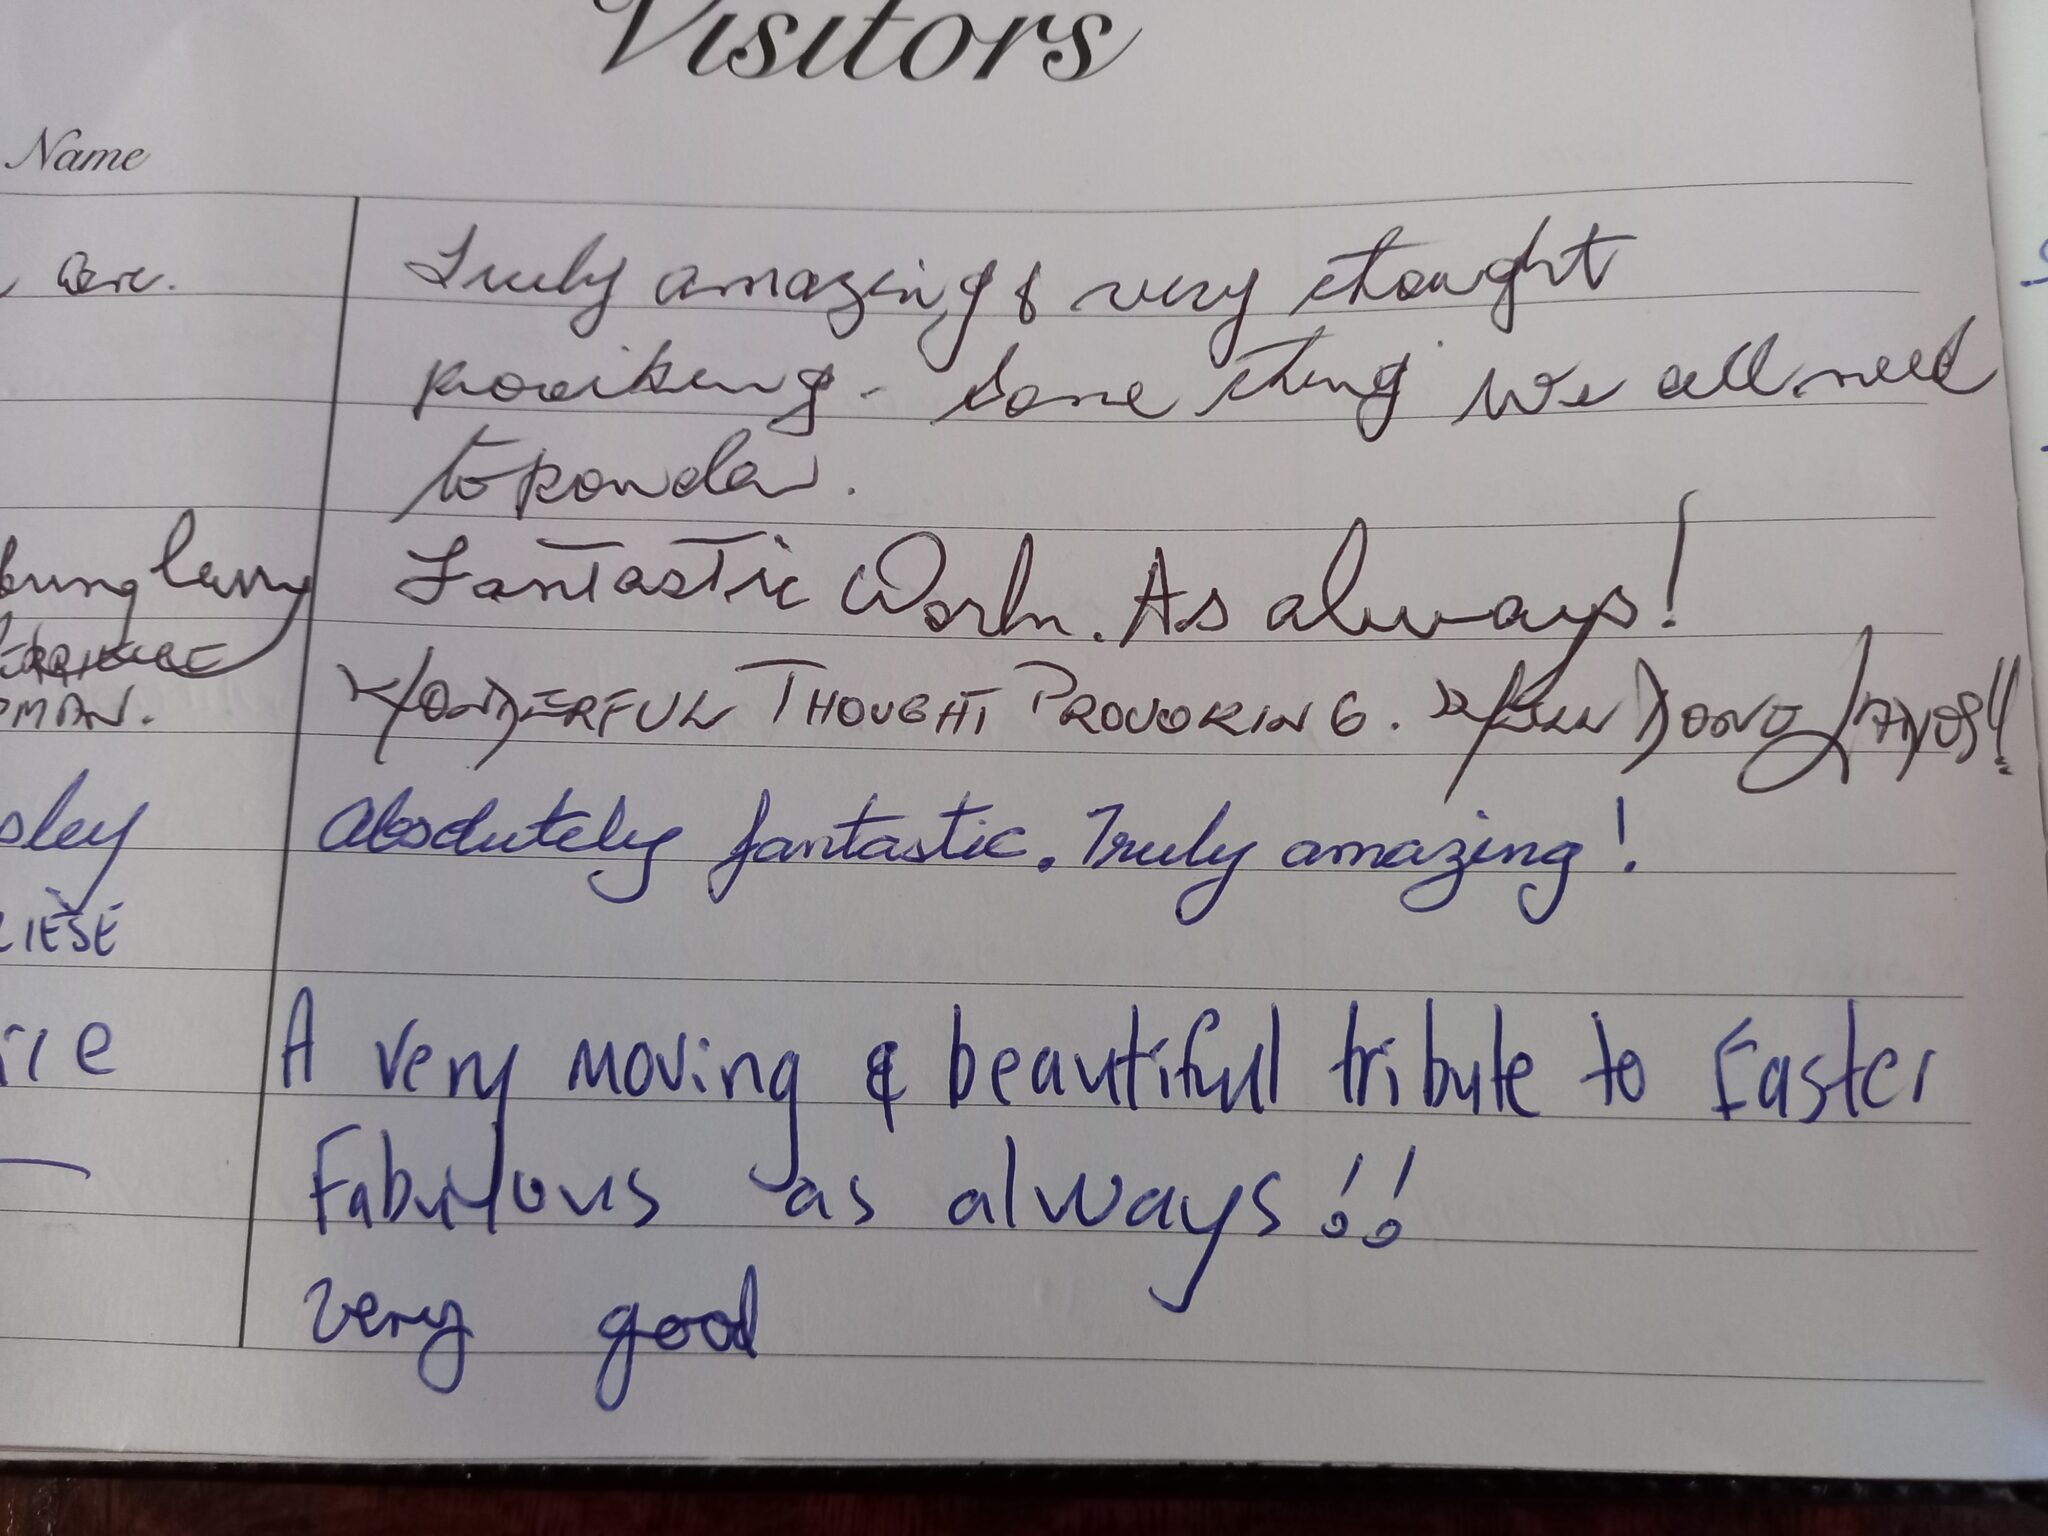 Visitors
Name
Truly amazing & very thought
provoking - Some thing we all need
to ponder.
Fantastic Work. As always!
WONDERFUL THOUGHT PROVOKING. WELL DONE
PMAN.
sley Absolutely fantastic. Truly amazing!
A very moving & beautiful tribute to Easter
Fabulous as always!!
very good